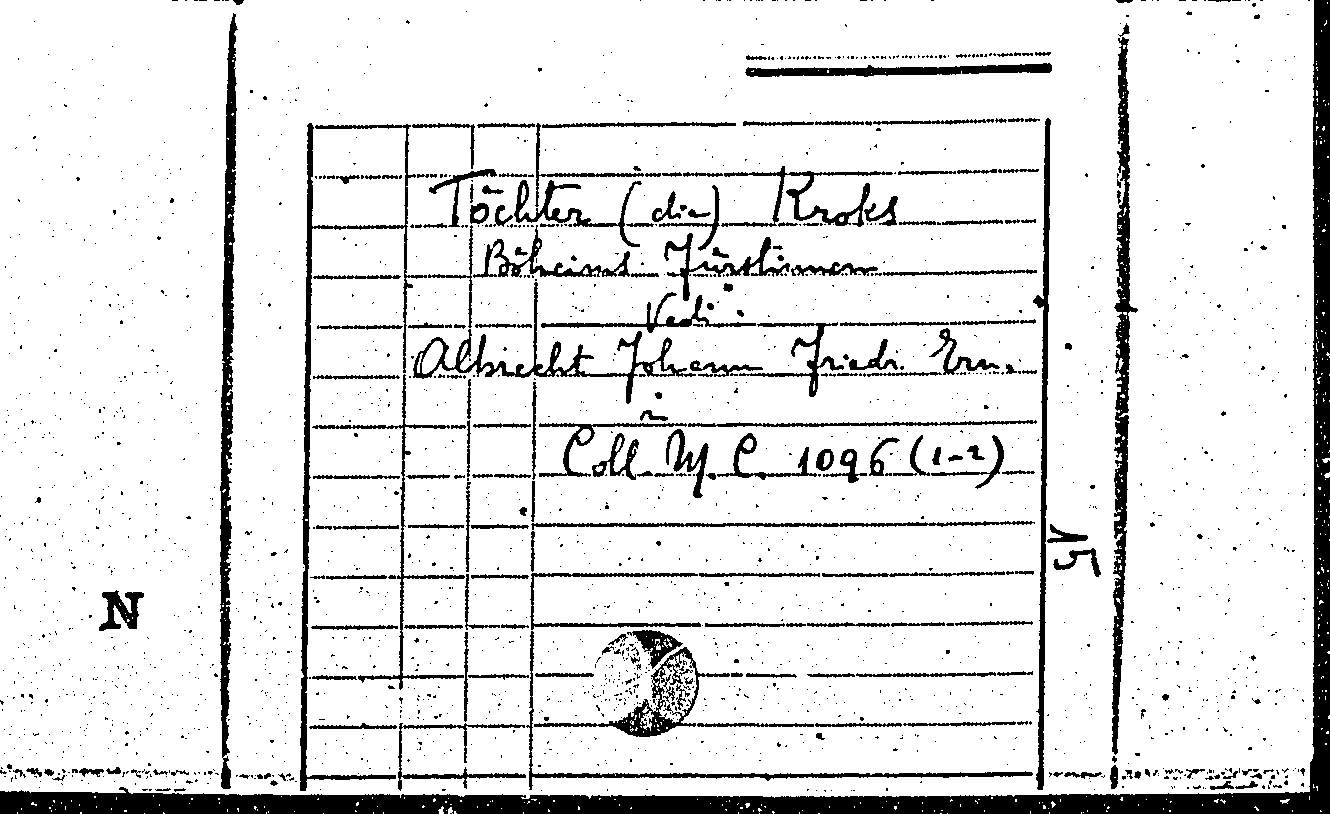 Töchter (die) Kroks
Böheims Fürstinnen
Vedi:
Albrecht Johann Friedr. Ern.
Coll. M. C. 1096 (1-2)
15
N